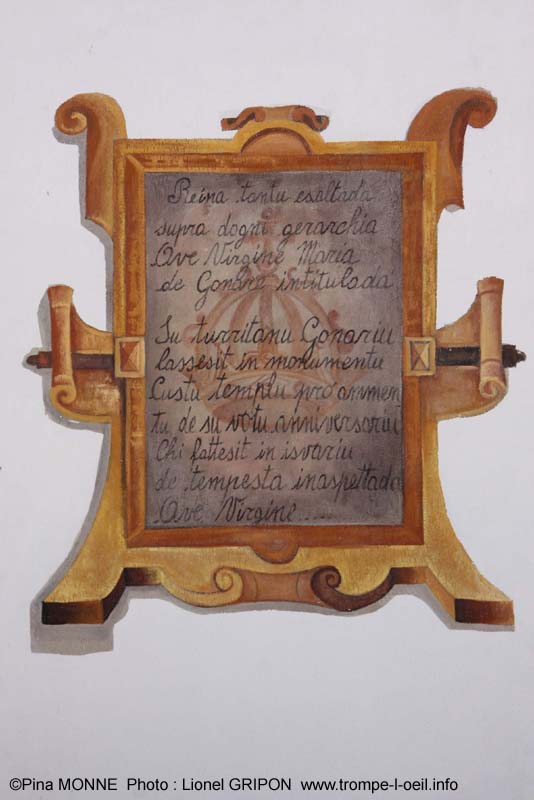 Reina tantu esaltada
supra dogni gerarchia
Ave Virgine Maria
de Gonare intitulada
Su turritanu Gonariu
lassesit in monumentu
Custu templu pro ammen
tu de su votu anniversariu
Chi fattesit in isvariu
de tempesta inaspettada
Ave Virgine....
©Pina MONNE Photo : Lionel GRIPON www.trompe-l-oeil.info